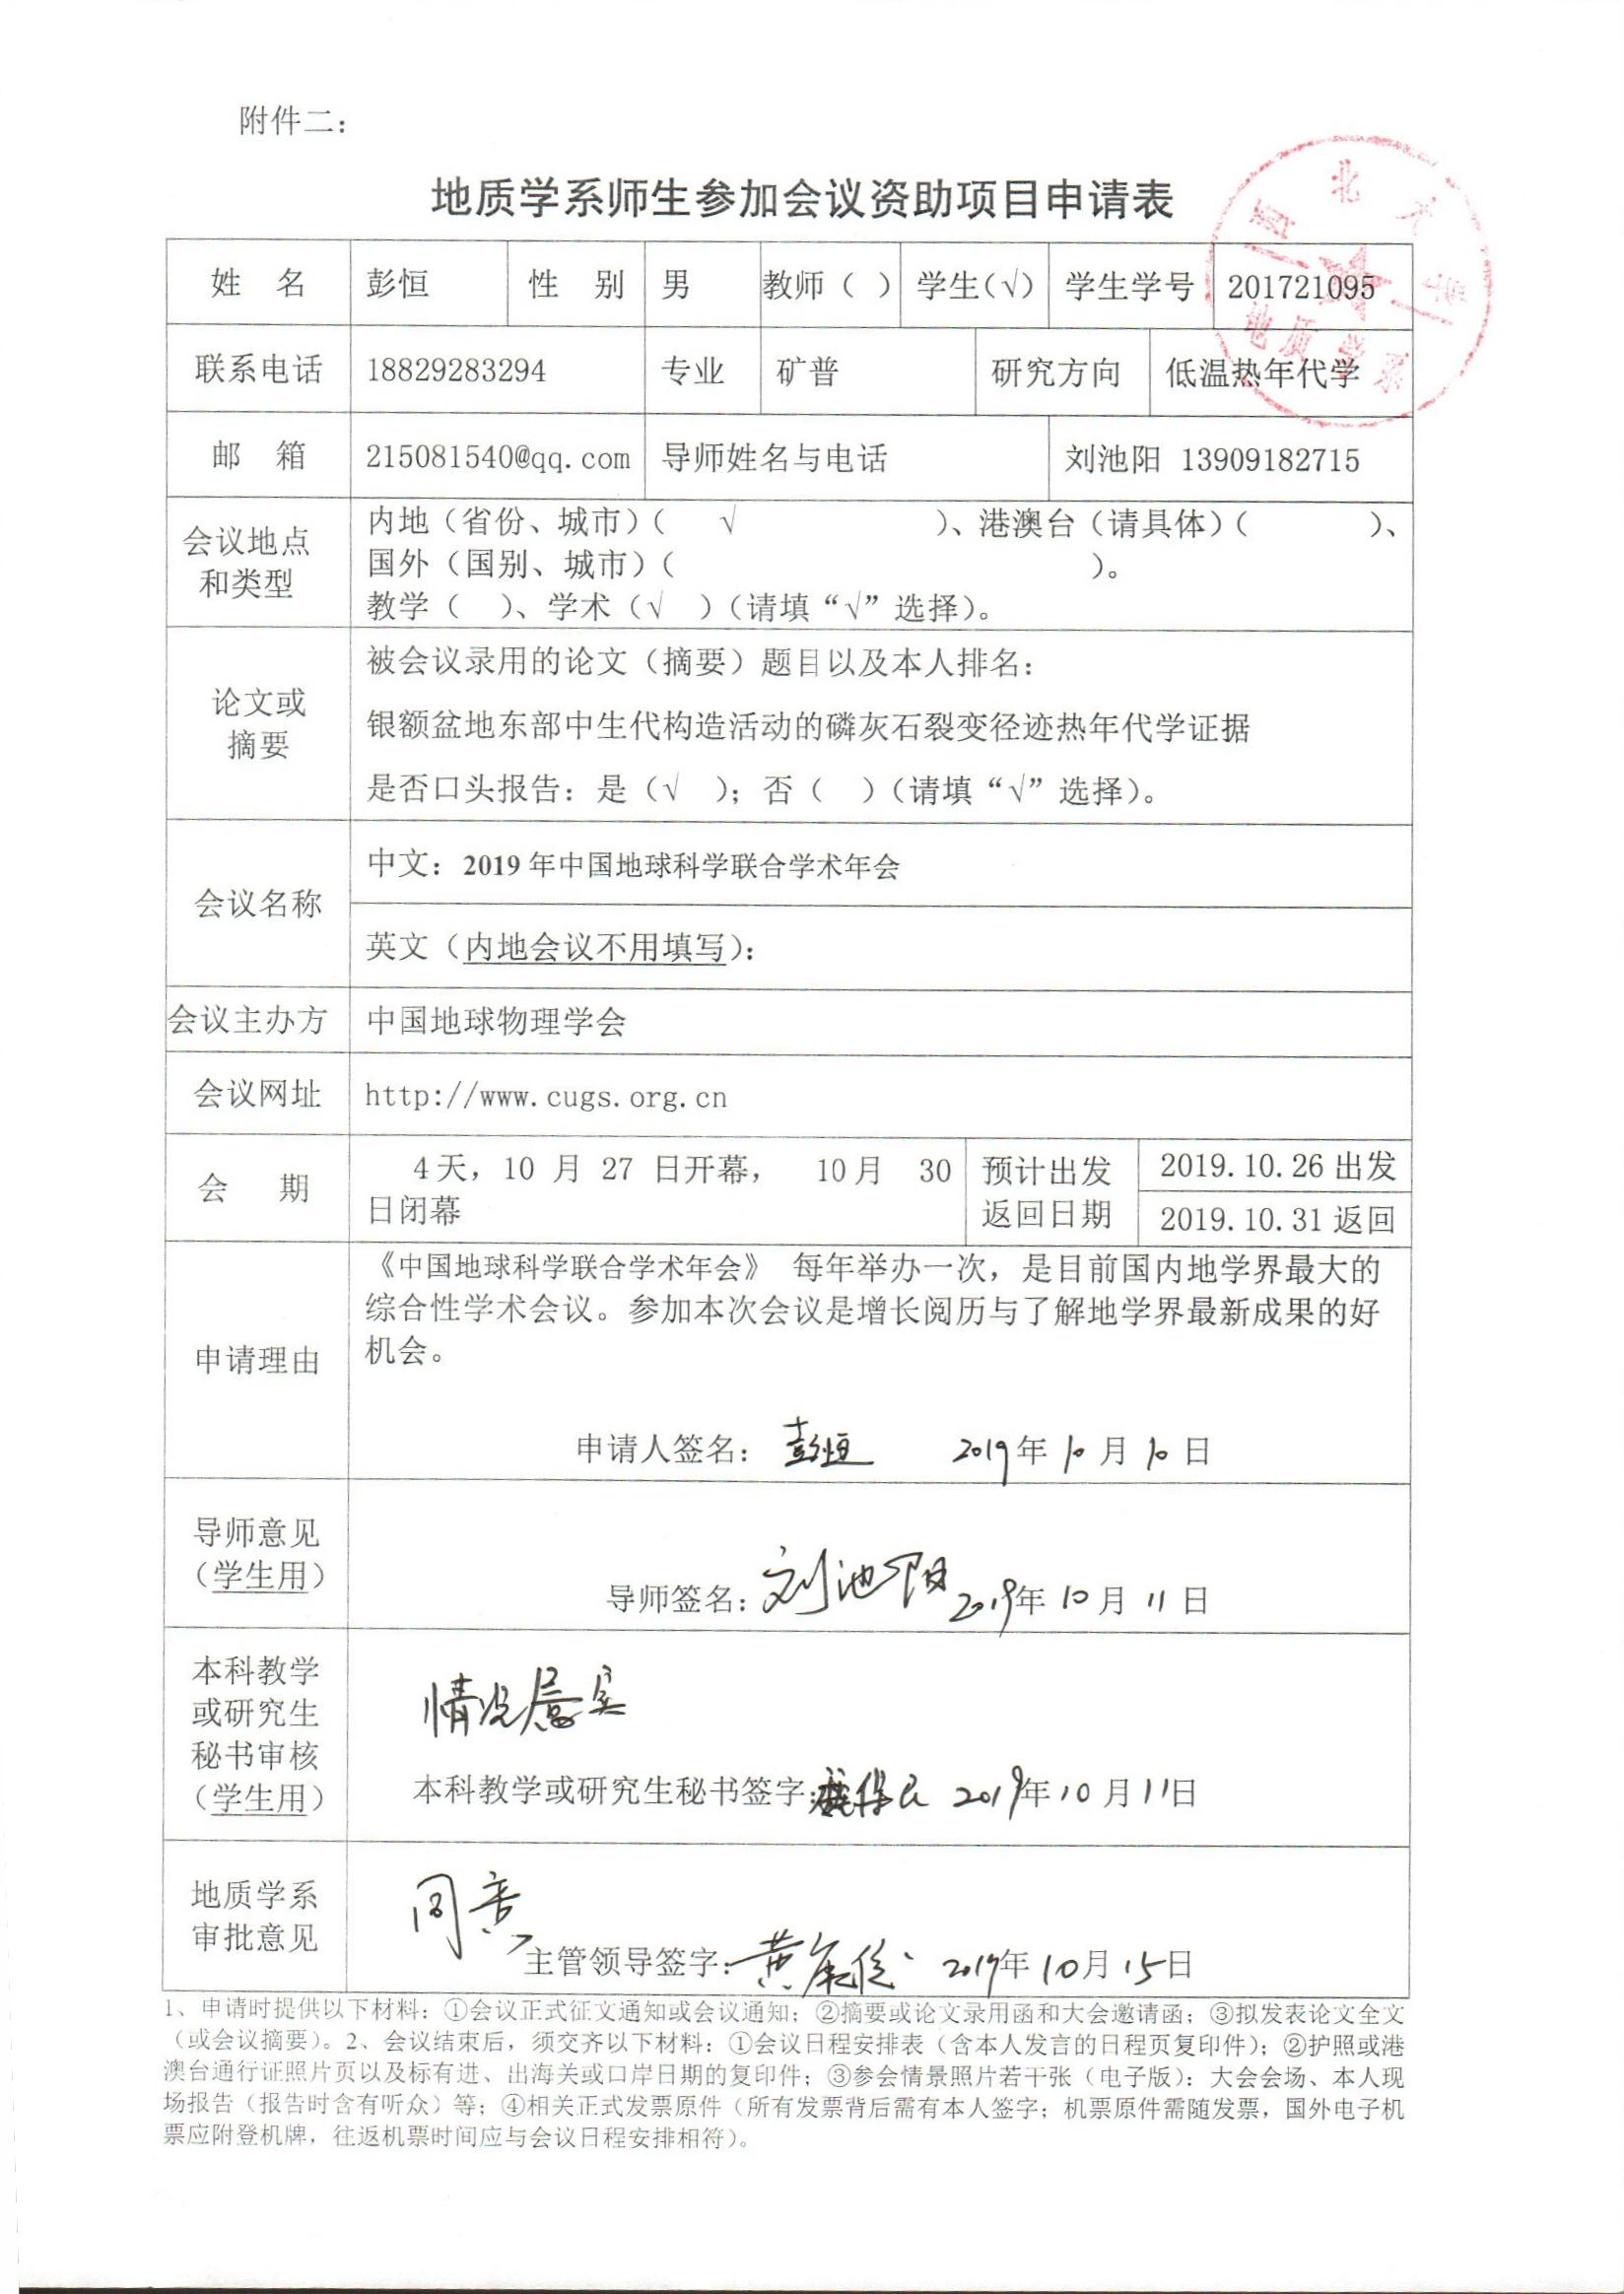 附件二：
地质学系师生参加会议资助项目申请表
西北大学
地质学系
姓 名 彭恒 性 别 男 教师（ ） 学生(√) 学生学号 201721095
联系电话 18829283294 专业 矿普 研究方向 低温热年代学
邮 箱 215081540@qq.com 导师姓名与电话 刘池阳 13909182715
会议地点和类型
内地（省份、城市）（ √ ）、港澳台（请具体）（ ）、
国外（国别、城市）（ ）。
教学（ ）、学术（√ ）（请填“√”选择）。
论文或摘要
被会议录用的论文（摘要）题目以及本人排名：
银额盆地东部中生代构造活动的磷灰石裂变径迹热年代学证据
是否口头报告：是（√ ）；否（ ）（请填“√”选择）。
会议名称
中文：2019 年中国地球科学联合学术年会
英文（内地会议不用填写）：
会议主办方 中国地球物理学会
会议网址 http://www.cugs.org.cn
会 期
4天，10 月 27 日开幕， 10月 30
日闭幕
预计出发
返回日期
2019.10.26 出发
2019.10.31 返回
申请理由
《中国地球科学联合学术年会》 每年举办一次，是目前国内地学界最大的
综合性学术会议。参加本次会议是增长阅历与了解地学界最新成果的好
机会。
申请人签名：彭恒 2019年10月10日
导师意见
（学生用）
导师签名：刘池阳 2019年10月11日
本科教学
或研究生
秘书审核
（学生用）
情况属实
本科教学或研究生秘书签字： 2019年10月11日
地质学系
审批意见
同意
主管领导签字：黄 2019年10月15日
1、申请时提供以下材料：①会议正式征文通知或会议通知；②摘要或论文录用函和大会邀请函；③拟发表论文全文
（或会议摘要）。2、会议结束后，须交齐以下材料：①会议日程安排表（含本人发言的日程页复印件）；②护照或港
澳台通行证照片页以及标有进、出海关或口岸日期的复印件；③参会情景照片若干张（电子版）：大会会场、本人现
场报告（报告时含有听众）等；④相关正式发票原件（所有发票背后需有本人签字；机票原件需随发票，国外电子机
票应附登机牌，往返机票时间应与会议日程安排相符）。